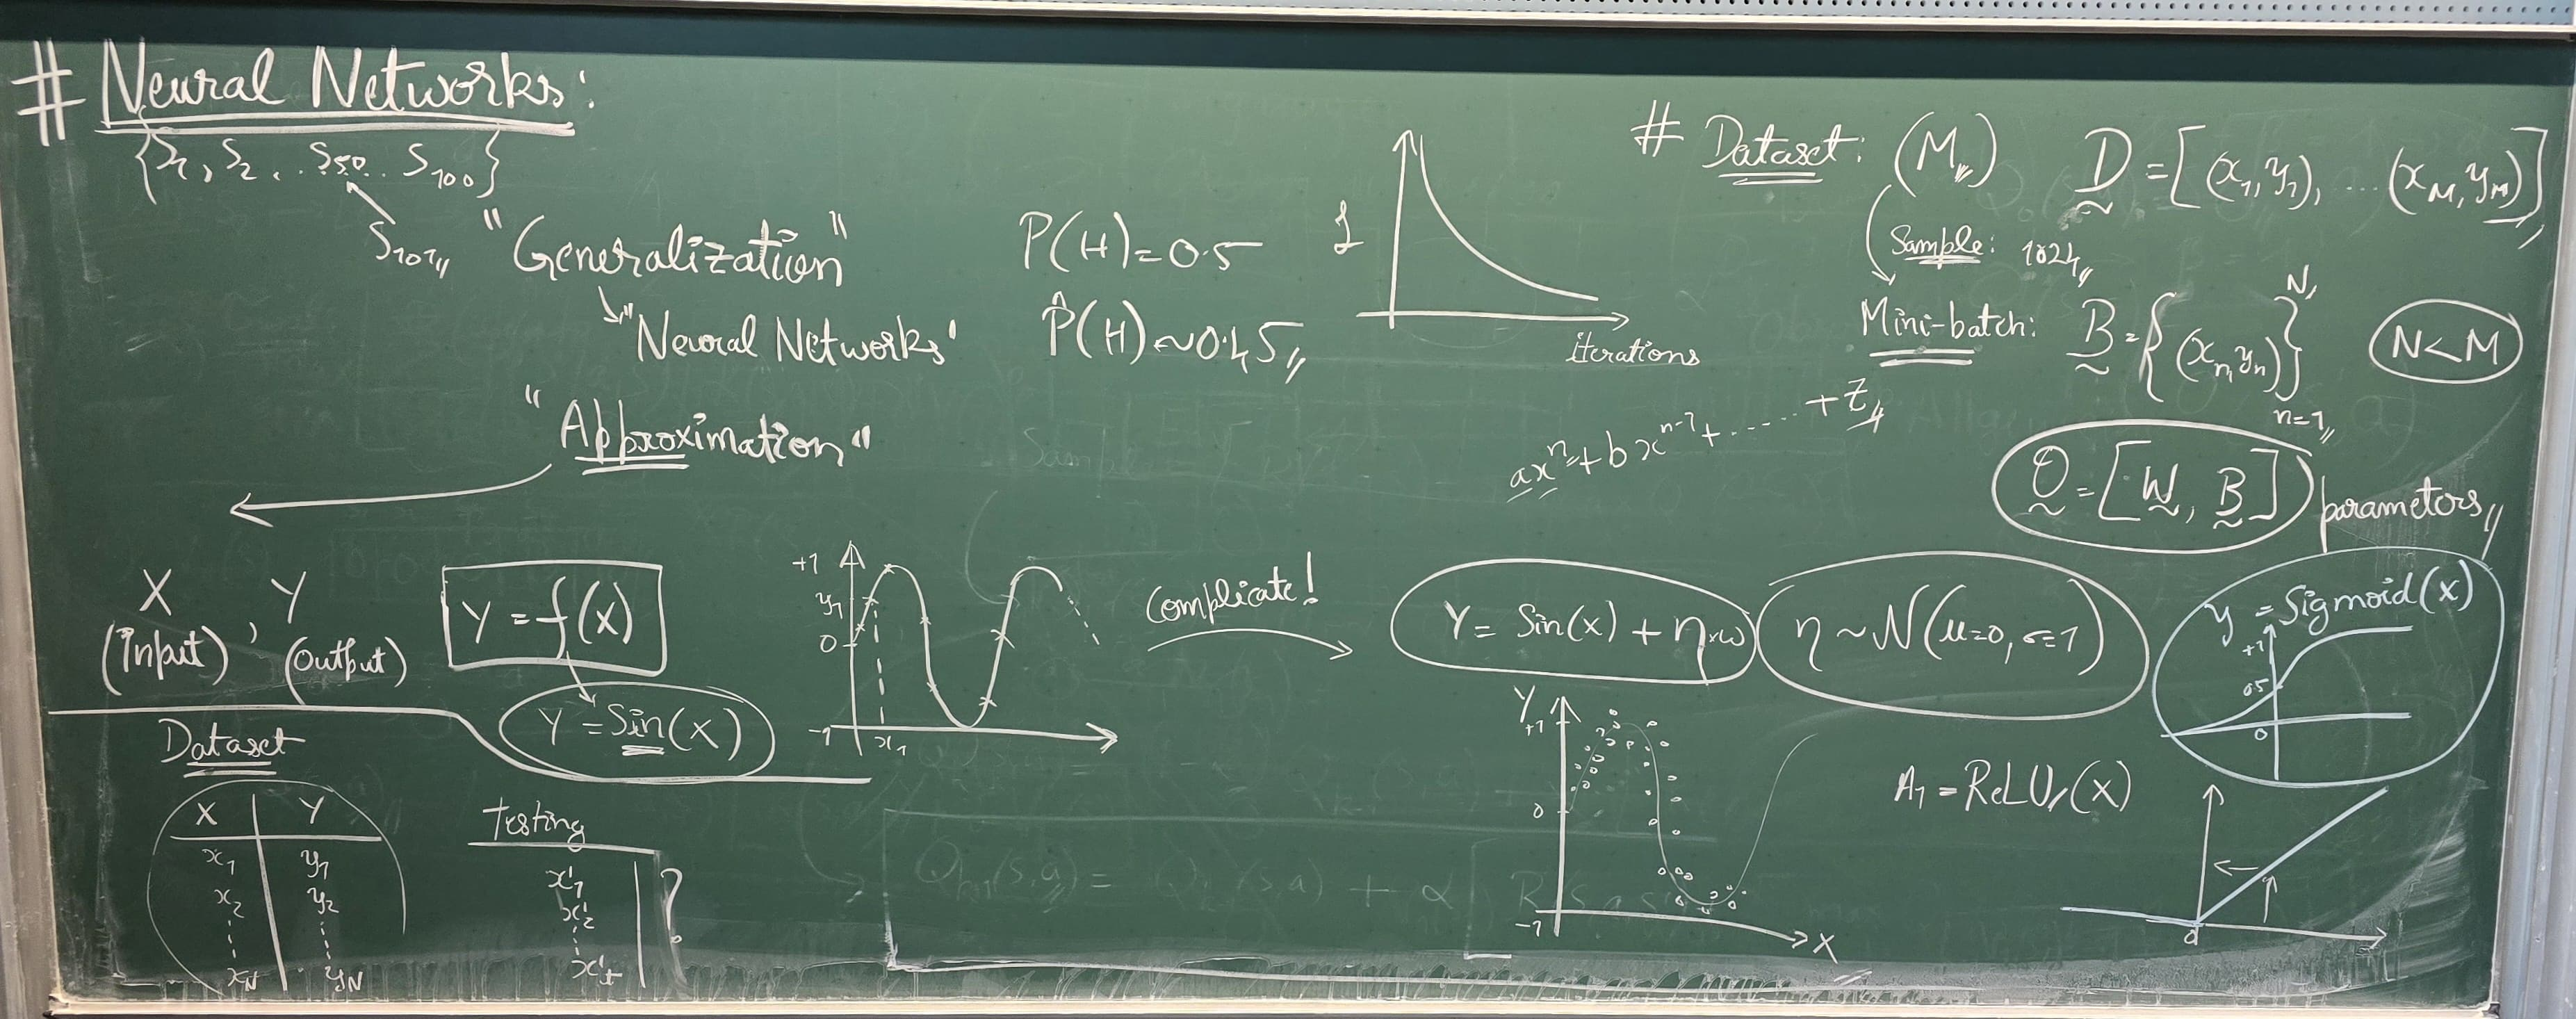 # Neural Networks:
{S₁, S₂, . . S₅₀ . . S₁₀₀}
S₁₀₁
"Generalization"
"Neural Networks"
"Approximation"
P(H) = 0.5
P̂(H) ~ 0.45
iterations
axⁿ + bxⁿ⁻¹ + ...... + z
# Dataset: (M)
D = [(x₁, y₁), ... (x_M, y_M)]
Sample: 1024
Mini-batch: B = {(xₙ, yₙ)}ᴺₙ₌₁
N < M
θ = [W, B] parameters
X , Y
(Input) (Output)
Y = f(X)
Y = Sin(X)
+1
y₁
0
-1 x₁
Complicate!
Y = Sin(X) + η
η ~ N(μ=0, σ=1)
y = Sigmoid(x)
+1
0.5
0
Dataset
X Y
x₁ y₁
x₂ y₂
x_N y_N
Testing
x'₁
x'₂
x'ₜ
?
Y
+1
0
-1
X
A₁ = ReLU(X)
0